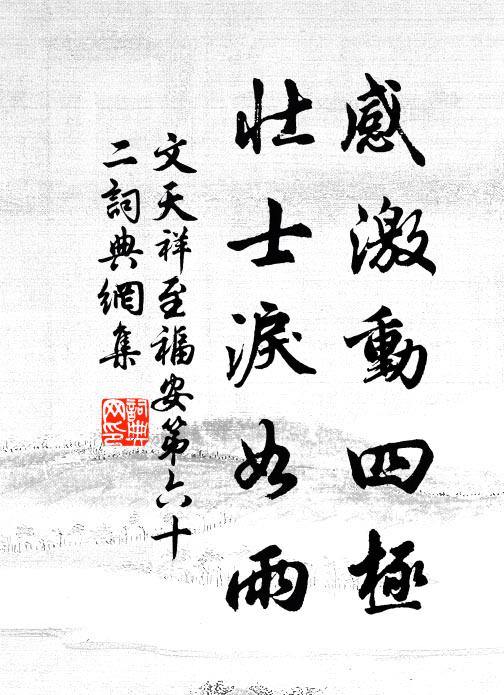 感激動四極
壯士淚如雨
文天祥至福安第六十
二詞典網集
詞典網印